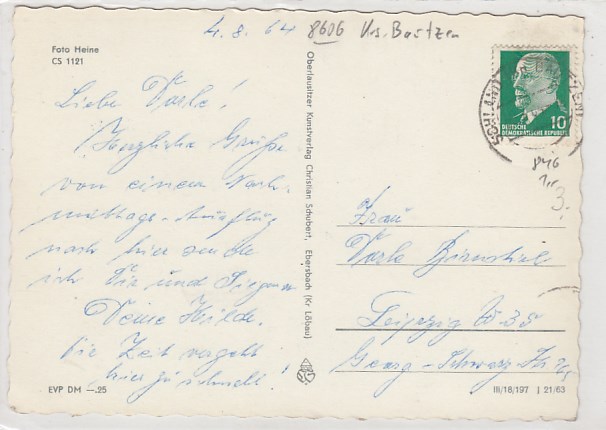 4. 8. 64 8606 Krs. Bautzen
Foto Heine
CS 1121
Liebe Carla!
Herzliche Grüße
von einem Nach-
mittags-Ausflug
nach hier sende
ich Dir und
Deine Hilde.
Die Zeit
hier zu schnell!
EVP DM —.25
Oberlausitzer Kunstverlag Christian Schubert, Ebersbach (Kr Löbau)
10
DEUTSCHE
DEMOKRATISCHE REPUBLIK
846
3.
Frau
Carla
Leipzig W 35
Georg-Schwarz-Str
III/18/197 J 21/63